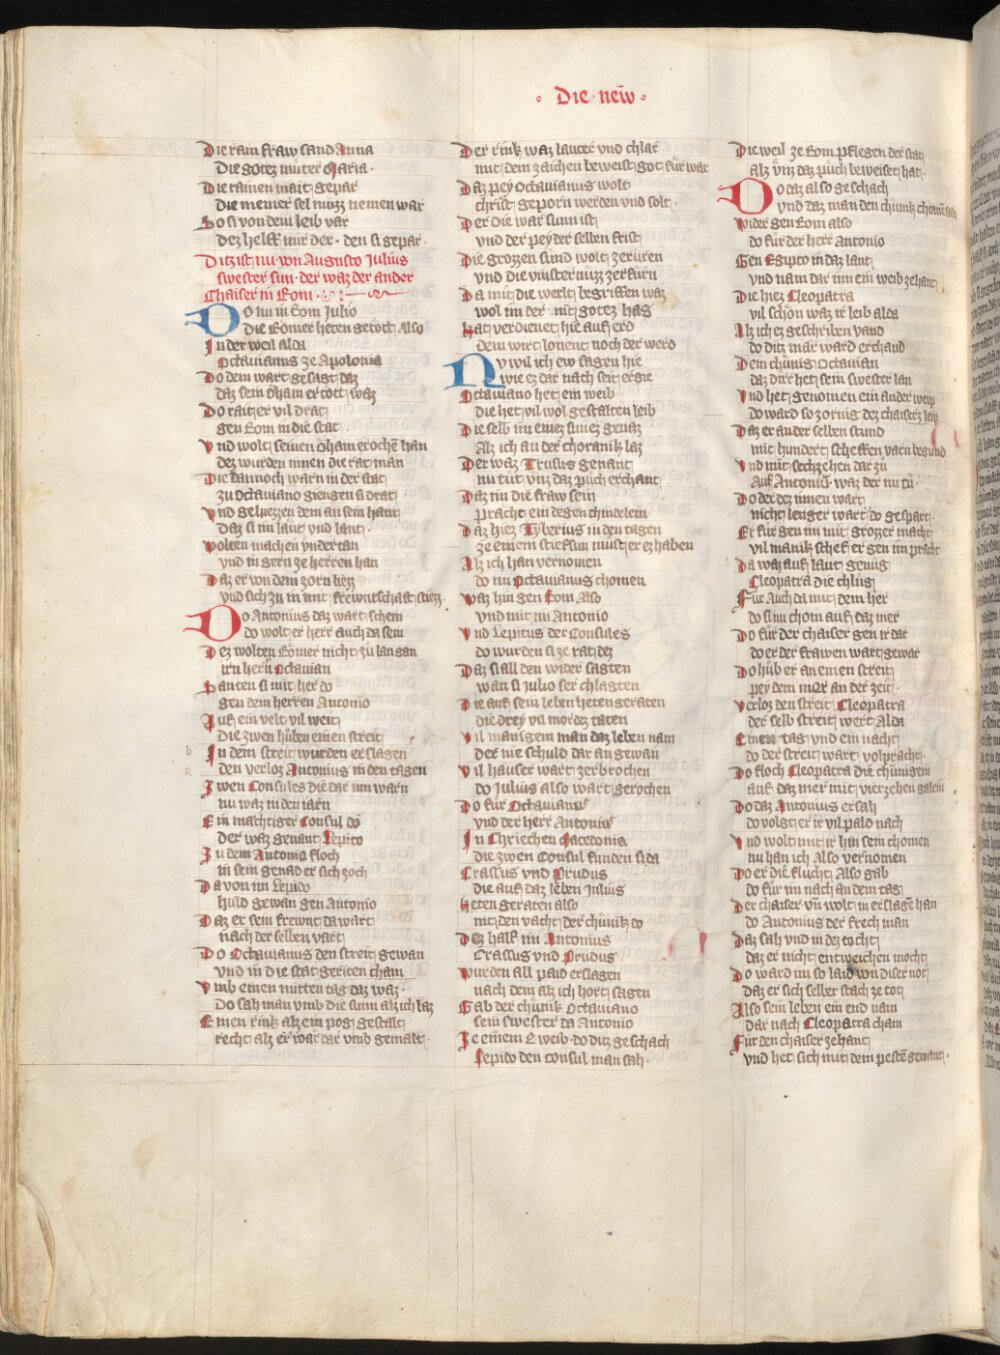 Die · new
Die rain fraw sand Anna
Die gotez muter Maria ·
Die rainen mait gepar
Die meiner sel muzz nemen war
So si von dem leib var
Dez helff mir der · den si gepar ·
Ditz ist nu von Augusto Julius
swester sun · der waz der ander
Chaiser in Rom ·
Do nu in Rom Julio
Die Romer heten getoch also
In der weil alda
Octavianus ze Apolonia
Do dem wart gesagt daz
daz sein oham ertott waz
Do rait er vil drat
gen Rom in die stat
Vnd wolt seinen oham eroche han
dez wurden innen die rat man
Die dannoch warn in der stat
zu Octaviano giengen si drat
Vnd geluezzen dem an sein hant
Daz si im laut vnd lant
Wolten machen vndertan
vnd in gern ze herren han
Daz er von dem zorn liezz
vnd sich zu in mit frewntschaft stiezz
Do Antonius daz wart schein
do wolt er herr auch da sein
Dez wolten Romer nicht zu lan gan
irn hern Octavian
Santen si mit her do
gen dem herren Antonio
Auf ein velt vil weit
Die zwen huben einen streit
In dem streit wurden erslagen
den verloz Antonius in den tagen
Zwen Consules die dar inn warn
nu waz in den iarn
Ein machtiger Consul do
der waz genant Lepito
Zu dem Antonio floch
in sein genad er sich zoch
Da von im Lepido
huld gewan gen Antonio
Daz er sein frewnt da wart
nach der selben vart
Do Octavianus den streit gewan
vnd in die stat geriten cham
Vmb einen mitten tag daz waz ·
Do sah man vmb die sunn alz ich laz
Einen rink alz ein pog gestalt
recht alz er war dar vmb gemalt ·
Der rink waz lauter vnd chlar
mit dem zaichen beweist got fur war
Daz pey Octavianus wolt
christ geporn werden vnd solt ·
Der die war sunn ist
vnd der pey der selben frist
Die grozzen sund wolt zerfuren
vnd die vinster nuzz zerfurn
Da mit die werlt begriffen waz
wol im der mit gotez hag
Hat verdienet hie auf erd
dem wirt lonent noch der werd
Nv wil ich ew sagen hie
wie ez dar nach seit ergie
Octaviano het ein weib
die het vil wol gestalten leib
Die selb im einez sunez genaz
Alz ich an der choranik laz
Der waz Trusus genant
nu tut vnz daz puch erchant
Daz im die fraw sein
pracht ein degen chindelein
Daz hiez Tyberius in den tagen
ze einem stiefsun must er ez haben
Alz ich han vernomen
do nu Octavianus chomen
Waz hin gen Rom also
vnd mit im Antonio
Vnd Lepitus der Consules
do wurden si ze rat dez
Daz si all den wider sagten
wan si Julio ser chlagten
Die auf sein leben heten geraten
die drey vil mordez taten
Vil manigem man daz leben nam
Der nie schuld dar an gewan
Vil hauser wart zerbrochen
do Julius also wart gerochen
Do fur Octavianus
vnd der herr Antonius
In Chriechen Macedonia
die zwen Consul funden si da
Crassus vnd Prudus
die auf daz leben Julius
Heten geraten also
mit den vacht der chunik do
Dez half im Antonius
Crassus vnd Prudus
Wurden all paid erslagen
nach dem alz ich hort sagen
Gab der chunik Octaviano
sein swester da Antonio
Ze einem E weib · do ditz geschach
Lepido den consul man sah ·
Die weil ze Rom pflegen der stat
alz vnz daz puch beweiset hat
Do daz also geschach
vnd daz man den chunik chomen sah
Wider gen Rom also
do fur der herr Antonio
Gen Egipto in daz lant
vnd nam dar inn ein weib zehant
Die hiez Cleopatra
vil schon waz ir leib alda
Alz ich ez geschriben vand
do ditz mar ward erchand
Dem chunig Octavian
daz dirr het sein swester lan
Vnd het genomen ein ander weip
do ward so zornig dez chaisers leip
Daz er an der selben stund
mit hundert scheffen varn begund
Vnd mit sechzehen dar zu
Auf Antonius waz der nu tu ·
Do der dez innen wart
nicht lenger wart do gespart ·
Er fur gen im mit grozzer macht
vil manik schef er gen im pracht
Da waz auf laut genug
Cleopatra die chlug
Fur Auch da mit dem her
do si nu chom auf daz mer
Do fur der chaiser gen ir dar
do er der frawen wart gewar
Do hub er an einen streit
pey dem mer an der zeit ·
Verloz den streit Cleopatra
der selb streit wert Alda
Einen tag vnd ein nacht
do der streit wart volpracht ·
Do floch Cleopatra die chunigein
auf daz mer mit vierzehen galein
Do daz Antonius ersah
do volgt er ir vil pald nach
Vnd wolt mit ir hin sein chomen
nu han ich also vernomen
Do er die flucht also gab
do fur im nach an dem tag
Der chaiser vn wolt in erslage han
do Antonius der frech man
Daz sah vnd in dez tocht
daz er nicht entweichen mocht
Do ward im so laid von diser not
daz er sich selber stach ze tot
Also sein leben ein end nam
dar nach Cleopatra cham
Fur den chaiser zehant
vnd het sich mit dem peste gewant ·